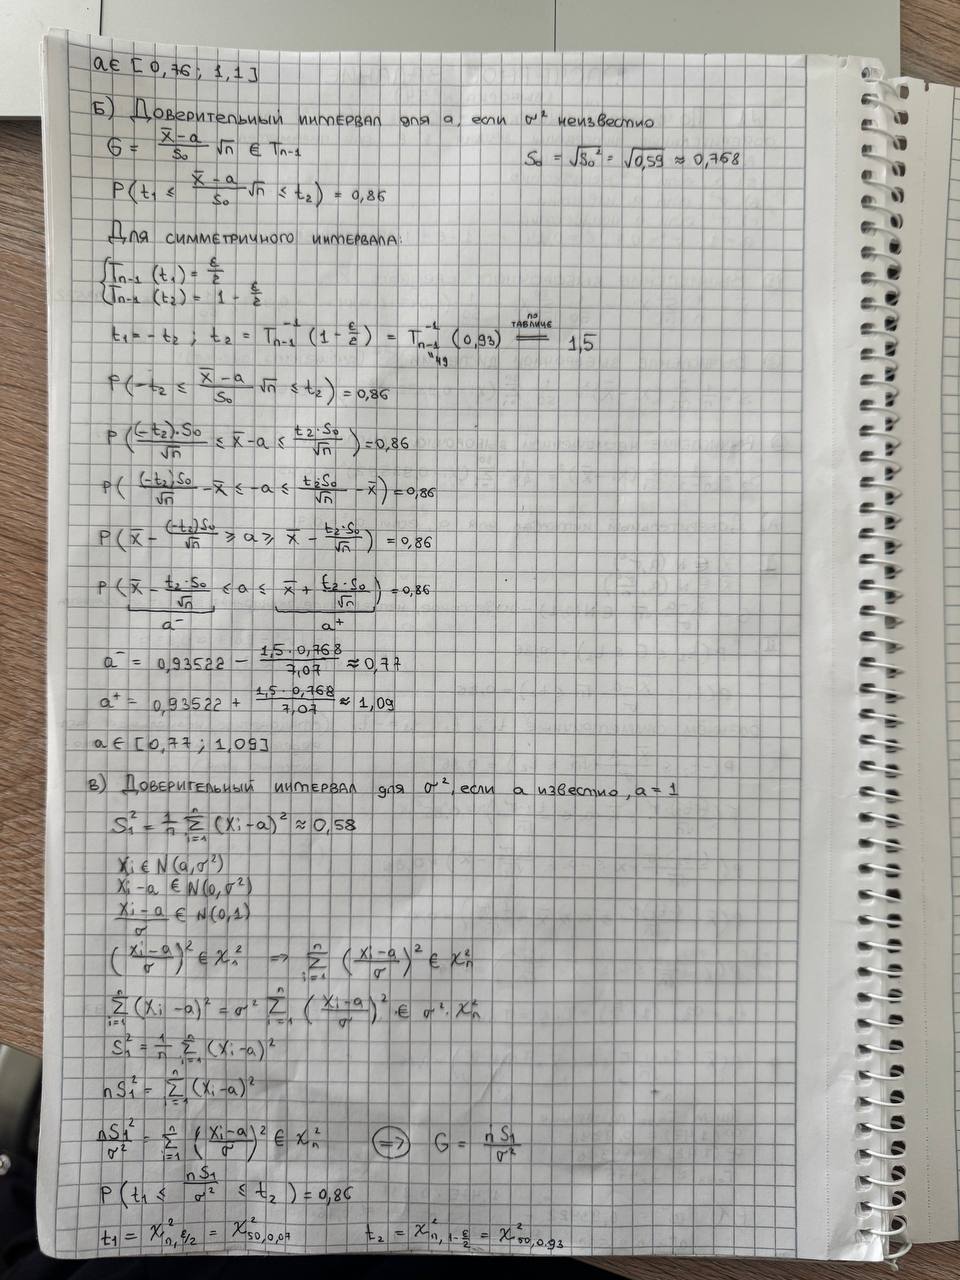 a ∈ [0,76 ; 1,1]
Б) Доверительный интервал для a, если σ² неизвестно
G = (x̄ - a)/S₀ √n ∈ Tₙ₋₁ S₀ = √S₀² = √0,59 ≈ 0,768
P(t₁ ≤ (x̄ - a)/S₀ √n ≤ t₂) = 0,86
Для симметричного интервала:
{Tₙ₋₁(t₁) = ε/2
Tₙ₋₁(t₂) = 1 - ε/2
t₁ = -t₂ ; t₂ = Tₙ₋₁⁻¹(1 - ε/2) = Tₙ₋₁⁻¹(0,93) =по таблице= 1,5
"49
P(-t₂ ≤ (x̄ - a)/S₀ √n ≤ t₂) = 0,86
P((-t₂)·S₀/√n ≤ x̄ - a ≤ t₂·S₀/√n) = 0,86
P((-t₂)S₀/√n - x̄ ≤ -a ≤ t₂S₀/√n - x̄) = 0,86
P(x̄ - (-t₂)S₀/√n ≥ a ≥ x̄ - t₂·S₀/√n) = 0,86
P(x̄ - t₂·S₀/√n ≤ a ≤ x̄ + t₂·S₀/√n) = 0,86
a⁻ a⁺
a⁻ = 0,93522 - 1,5·0,768/7,07 ≈ 0,77
a⁺ = 0,93522 + 1,5·0,768/7,07 ≈ 1,09
a ∈ [0,77 ; 1,09]
в) Доверительный интервал для σ², если a известно, a = 1
S₁² = 1/n Σᵢ₌₁ⁿ (Xᵢ - a)² ≈ 0,58
Xᵢ ∈ N(a, σ²)
Xᵢ - a ∈ N(0, σ²)
(Xᵢ - a)/σ ∈ N(0,1)
((Xᵢ - a)/σ)² ∈ χₙ² ⇒ Σᵢ₌₁ⁿ ((Xᵢ - a)/σ)² ∈ χₙ²
Σᵢ₌₁ⁿ (Xᵢ - a)² = σ² Σᵢ₌₁ⁿ ((Xᵢ - a)/σ)² ∈ σ²·χₙ²
S₁² = 1/n Σᵢ₌₁ⁿ (Xᵢ - a)²
nS₁² = Σᵢ₌₁ⁿ (Xᵢ - a)²
nS₁²/σ² = Σᵢ₌₁ⁿ ((Xᵢ - a)/σ)² ∈ χₙ² ⇒ G = nS₁/σ²
P(t₁ ≤ nS₁/σ² ≤ t₂) = 0,86
t₁ = χ²ₙ,ε/₂ = χ²₅₀,₀,₀₇ t₂ = χ²ₙ,₁₋ε/₂ = χ²₅₀,₀.₉₃